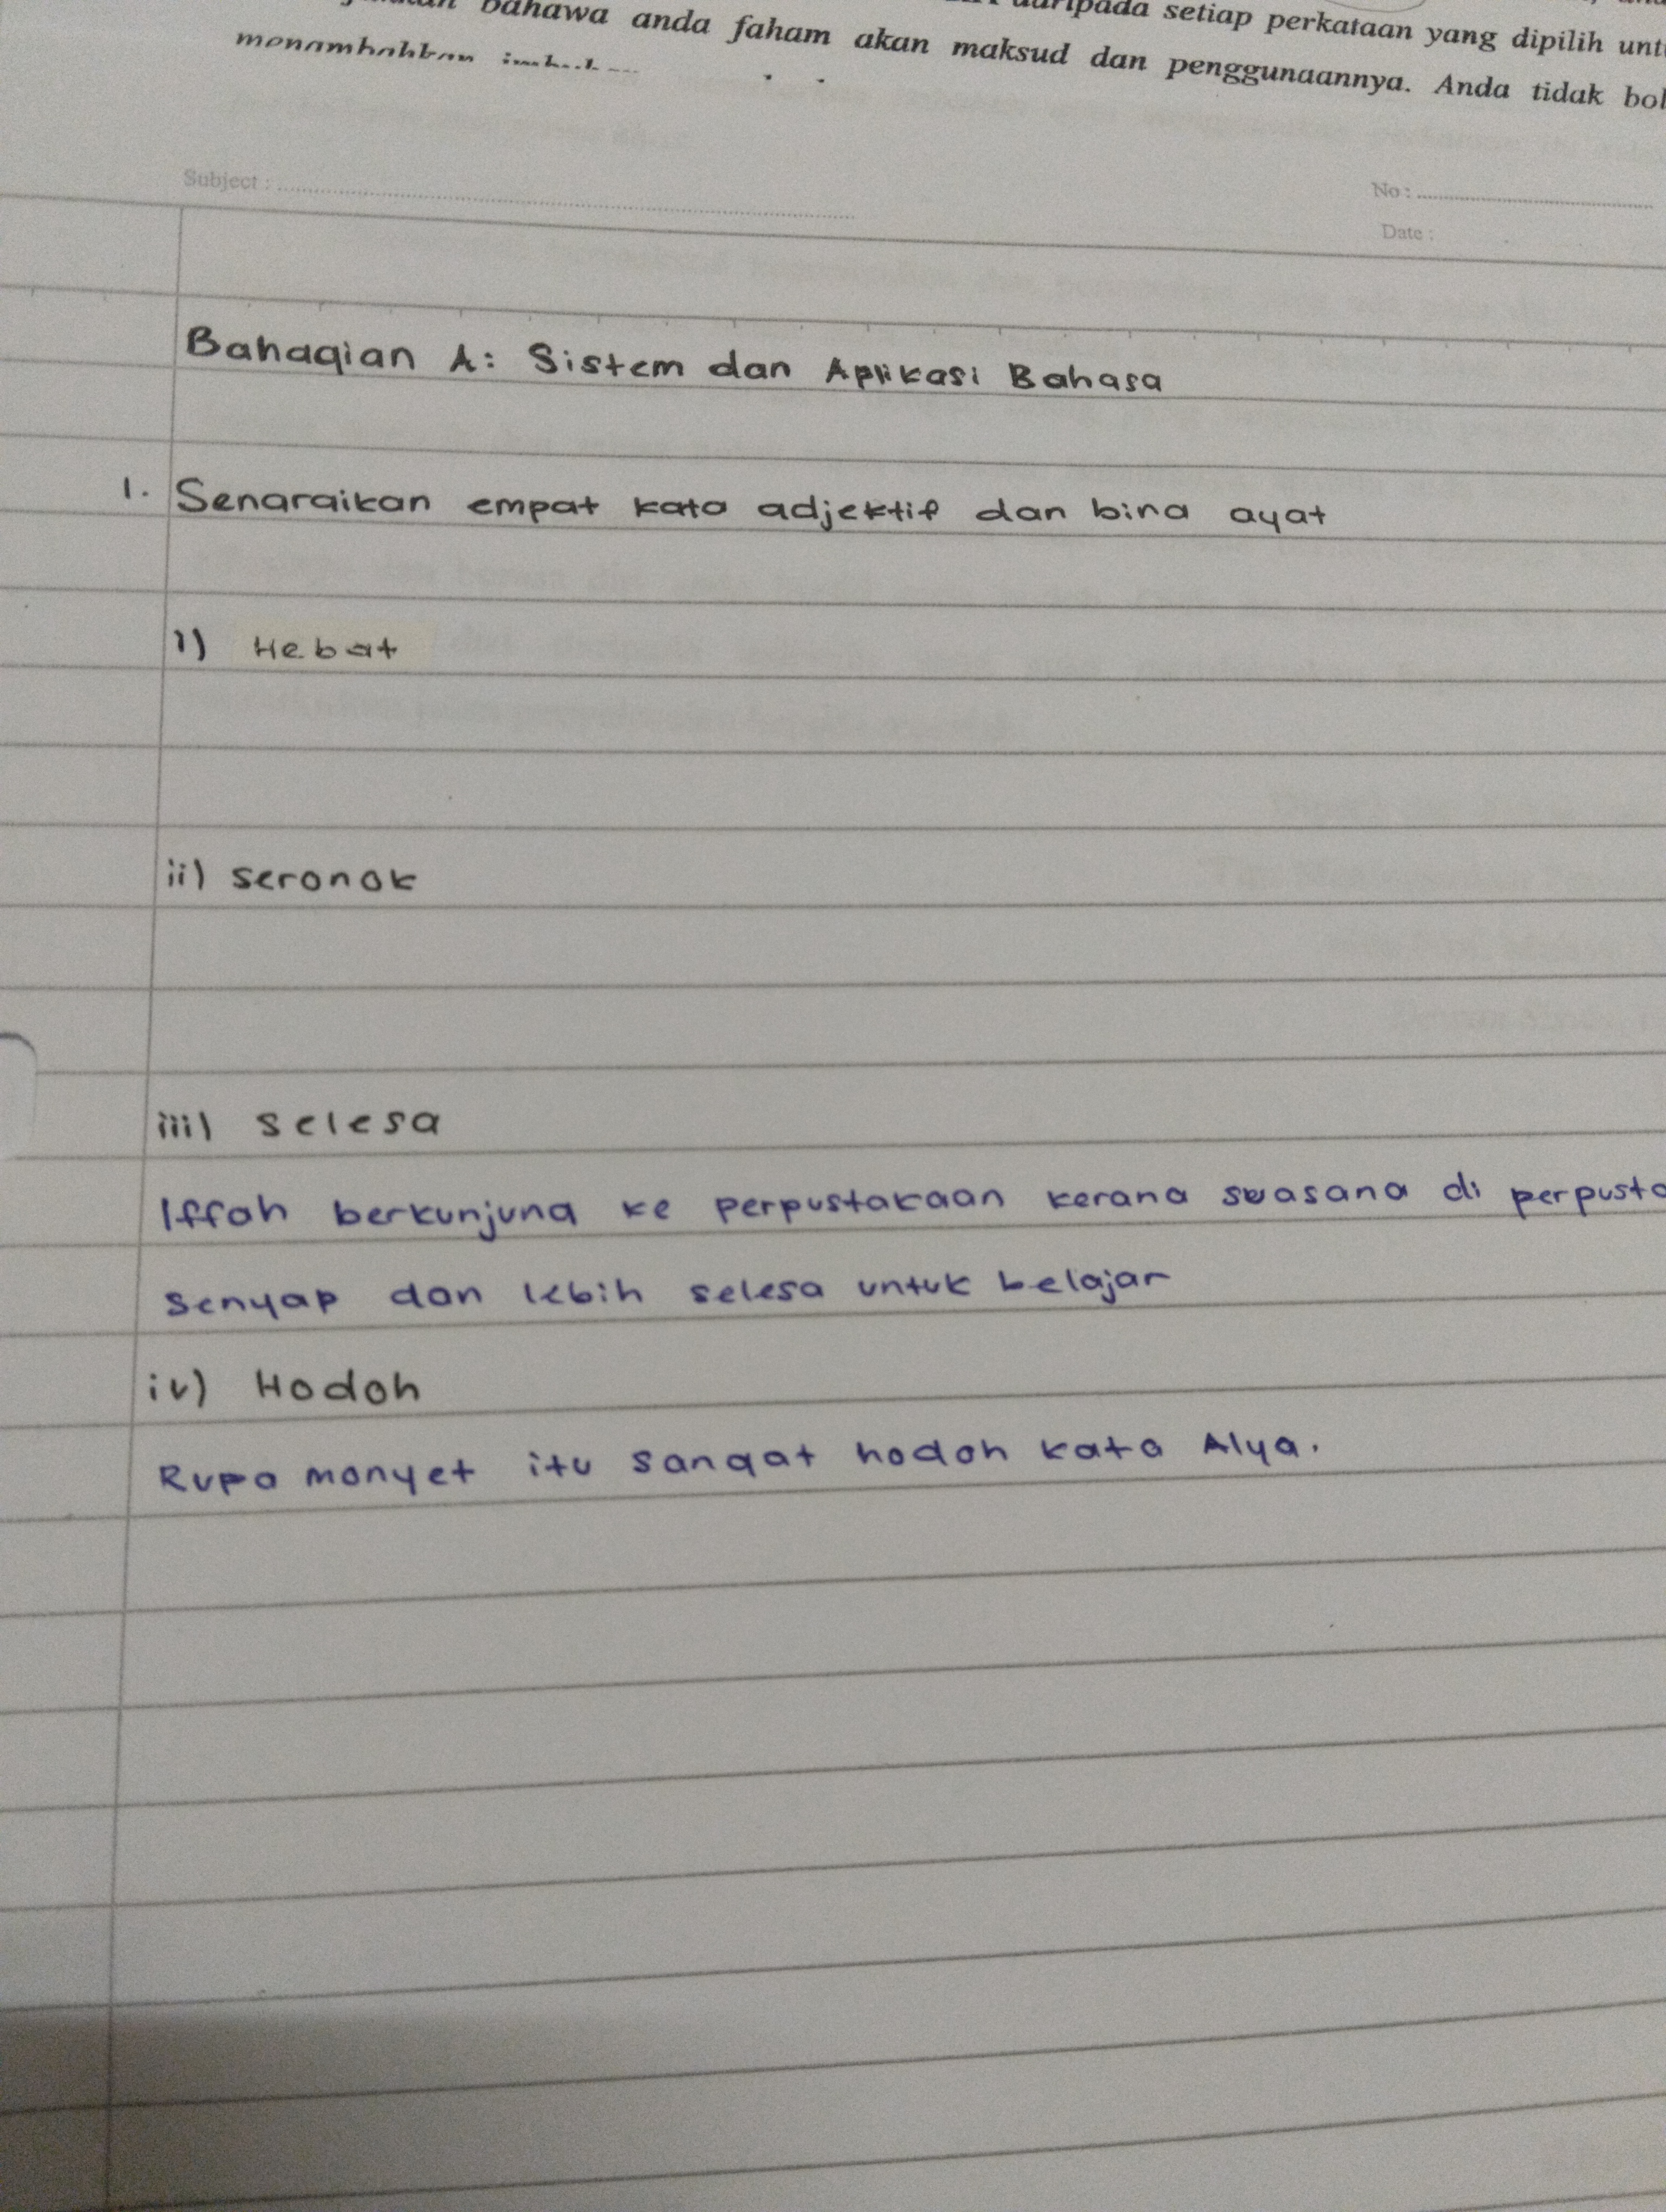 bahawa anda faham akan maksud dan penggunaannya. Anda tidak
daripada setiap perkataan yang dipilih
menambahkan
Subject :
No :
Date :
Bahagian A: Sistem dan Aplikasi Bahasa
1. Senaraikan empat kata adjektif dan bina ayat
i) Hebat
ii) seronok
iii) selesa
Iffah berkunjung ke perpustakaan kerana suasana di
senyap dan lebih selesa untuk belajar
iv) Hodoh
Rupa monyet itu sangat hodoh kata Alya.